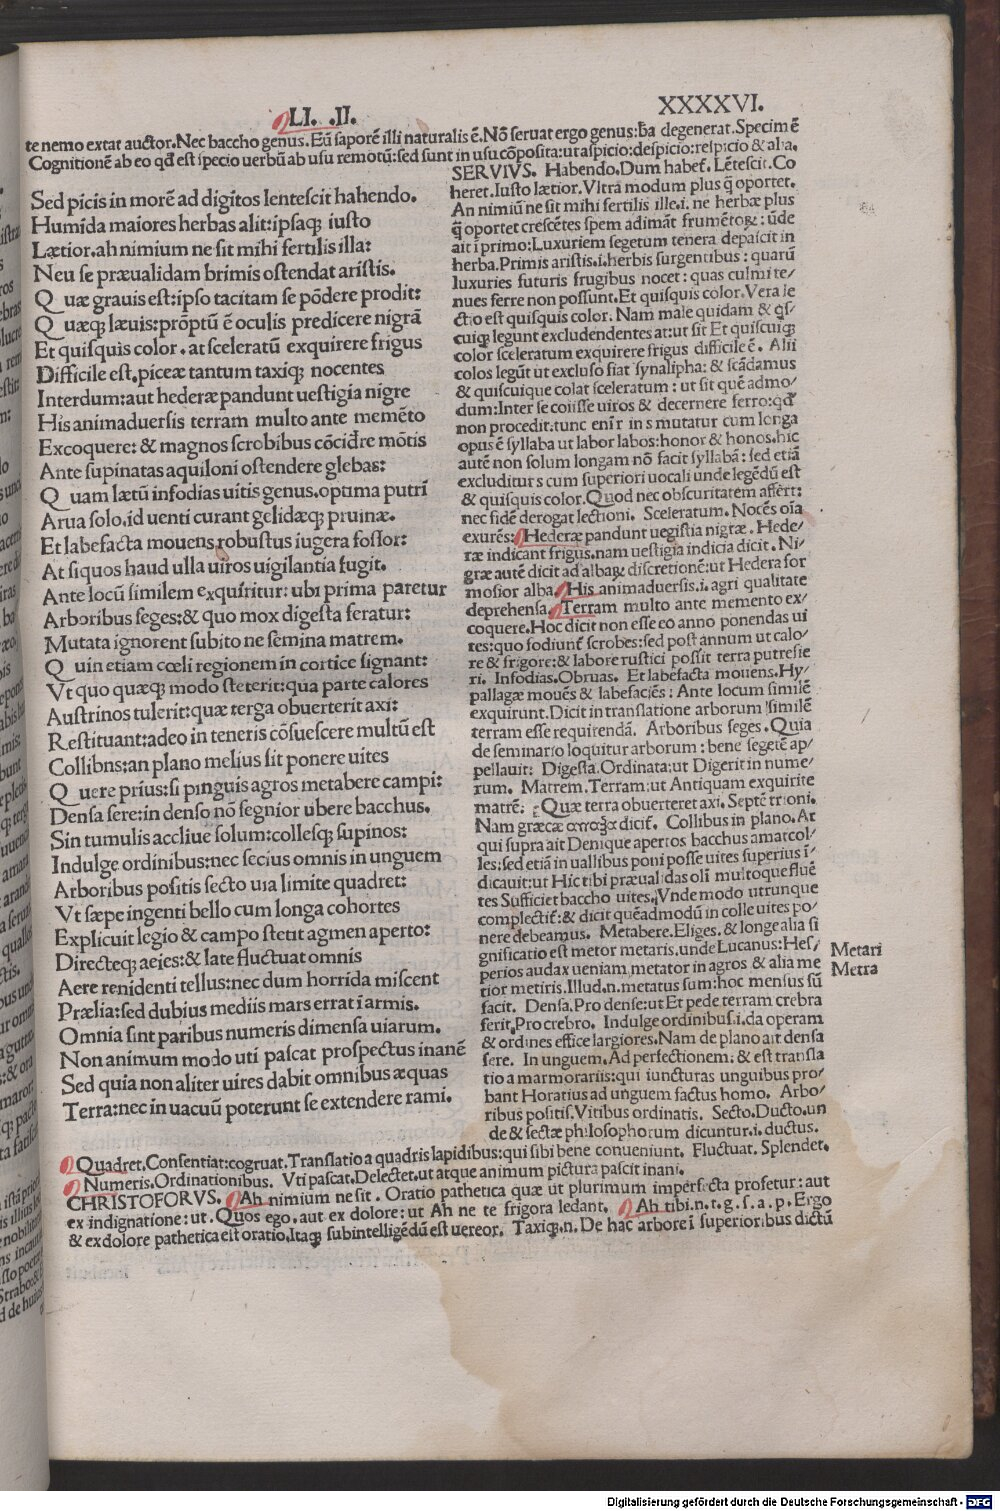 LI. .II.
XXXXVI.
te nemo extat auctor. Nec baccho genus. Eũ saporẽ illi naturalis ẽ. Nõ seruat ergo genus: degenerat. Specim ẽ
Cognitionẽ ab eo qđ est specio uerbũ ab usu remotũ: sed sunt in usu cõposita: ut aspicio: despicio: respicio & alia.
Sed picis in morẽ ad digitos lentescit habendo.
Humida maiores herbas alit: ipsaq; iusto
Lætior. ah nimium ne sit mihi fertilis illa:
Neu se præualidam brimis ostendat aristis.
Q uæ grauis est: ipso tacitam se põdere prodit:
Q uæq; læuis: prõptũ ẽ oculis predicere nigrã
Et quisquis color. at sceleratũ exquirere frigus
Difficile est. piceæ tantum taxiq; nocentes
Interdum: aut hederæ pandunt uestigia nigre
His animaduersis terram multo ante memẽto
Excoquere: & magnos scrobibus cõcidre mõtis
Ante supinatas aquiloni ostendere glebas:
Q uam lætũ infodias uitis genus. optima putri
Arua solo. id uenti curant gelidæq; pruinæ.
Et labefacta mouens robustus iugera fossor:
At siquos haud ulla uiros uigilantia fugit.
Ante locũ similem exquiritur: ubi prima paretur
Arboribus seges: & quo mox digesta feratur:
Mutata ignorent subito ne semina matrem.
Q uin etiam cœli regionem in cortice signant:
Vt quo quæq; modo steterit: qua parte calores
Austrinos tulerit: quæ terga obuerterit axi:
Restituant: adeo in teneris cõsuescere multũ est
Collibns: an plano melius sit ponere uites
Q uere prius: si pinguis agros metabere campi:
Densa sere: in denso nõ segnior ubere bacchus.
Sin tumulis accliue solum: collesq; supinos:
Indulge ordinibus: nec secius omnis in unguem
Arboribus positis secto uia limite quadret:
Vt sæpe ingenti bello cum longa cohortes
Explicuit legio & campo stetit agmen aperto:
Directeq; aeies: & late fluctuat omnis
Aere renidenti tellus: nec dum horrida miscent
Prælia: sed dubius mediis mars errat ĩ armis.
Omnia sint paribus numeris dimensa uiarum.
Non animum modo uti pascat prospectus inanẽ
Sed quia non aliter uires dabit omnibus æquas
Terra: nec in vacuũ poterunt se extendere rami.
SERVIVS. Habendo. Dum habet̃. Lẽtescit. Co
heret. Iusto lætior. Vltra modum plus q̃ oportet.
An nimiũ ne sit mihi fertilis ille. i. ne herbæ plus
q̃ oportet crescẽtes spem adimãt frumẽtoꝝ: ũde
ait ĩ primo: Luxuriem segetum tenera depascit in
herba. Primis aristis. i. herbis surgentibus: quarũ
luxuries futuris frugibus nocet: quas culmi te/
nues ferre non possunt. Et quisquis color. Vera le
ctio est quisquis color. Nam male quidam & qs̃/
cuiq; legunt excludendentes at: ut sit Et quiscuiq;
color sceleratum exquirere frigus difficile ẽ. Alii
colos legũt ut excluso fiat synalipha: & scãdamus
& quiscuique colat sceleratum: ut sit quẽ admo/
dum: Inter se coiisse uiros & decernere ferro: qđ
non procedit. tunc enĩ r in s mutatur cum longa
opus ẽ syllaba ut labor labos: honor & honos. hic
autẽ non solum longam nõ facit syllabã: sed etiã
excluditur s cum superiori uocali unde legẽdũ est
& quisquis color. Quod nec obscuritatem affert:
nec fidẽ derogat lectioni. Sceleratum. Nocẽs oĩa
exurẽs: Hederæ pandunt uegistia nigræ. Hede/
ræ indicant frigus. nam uestigia indicia dicit. Ni/
græ autẽ dicit ad albaꝝ discretionẽ: ut Hedera for
mosior alba. His animaduersis. i. agri qualitate
deprehensa. Terram multo ante memento ex/
coquere. Hoc dicit non esse eo anno ponendas ui
tes: quo fodiunt̃ scrobes: sed post annum ut calo/
re & frigore: & labore rustici possit terra putresie
ri. Infodias. Obruas. Et labefacta mouens. Hy/
pallagæ mouẽs & labefaciẽs: Ante locum similẽ
exquirunt. Dicit in translatione arborum similẽ
terram esse requirendã. Arboribus seges. Quia
de seminario loquitur arborum: bene segetẽ ap/
pellauit: Digesta. Ordinata: ut Digerit in nume/
rum. Matrem. Terram: ut Antiquam exquirite
matrẽ: Quæ terra obuerteret axi. Septẽ trioni.
Nam græcæ dicit̃. Collibus in plano. At
qui supra ait Denique apertos bacchus amat col/
les: sed etiã in uallibus poni posse uites superius ĩ/
dicauit: ut Hic tibi præualidas oli multoque fluẽ
tes Sufficiet baccho uites. Vnde modo utrunque
complectit̃: & dicit quẽadmodũ in colle uites po/
nere debeamus. Metabere. Eliges. & longe alia si
gnificatio est metor metaris. unde Lucanus: Hes/
perios audax ueniam metator in agros & alia me
tior metiris. Illud. n. metatus sum: hoc mensus sũ
facit. Densa. Pro dense: ut Et pede terram crebra
ferit. Pro crebro. Indulge ordinibus. i. da operam
& ordines effice largiores. Nam de plano ait densa
sere. In unguem. Ad perfectionem: & est transla
tio a marmorariis: qui iuncturas unguibus pro/
bant Horatius ad unguem factus homo. Arbo/
ribus positis. Vitibus ordinatis. Secto. Ducto. un
de & sectæ philosophorum dicuntur. i. ductus.
Metari
Metra
Quadret. Consentiat: cogruat. Translatio a quadris lapidibus: qui sibi bene conueniunt. Fluctuat. Splendet.
Numeris. Ordinationibus. Vti pascat. Delectet. ut atque animum pictura pascit inani.
CHRISTOFORVS. Ah nimium ne sit. Oratio pathetica quæ ut plurimum imperfecta profetur: aut
ex indignatione: ut. Quos ego. aut ex dolore: ut Ah ne te frigora ledant. Ah tibi. n. t. g. s. a. p. Ergo
& ex dolore pathetica est oratio. Itaq; subintelligẽdũ est uereor. Taxiq;. n. De hac arbore ĩ superioribus dictũ
Digitalisierung gefördert durch die Deutsche Forschungsgemeinschaft - DFG